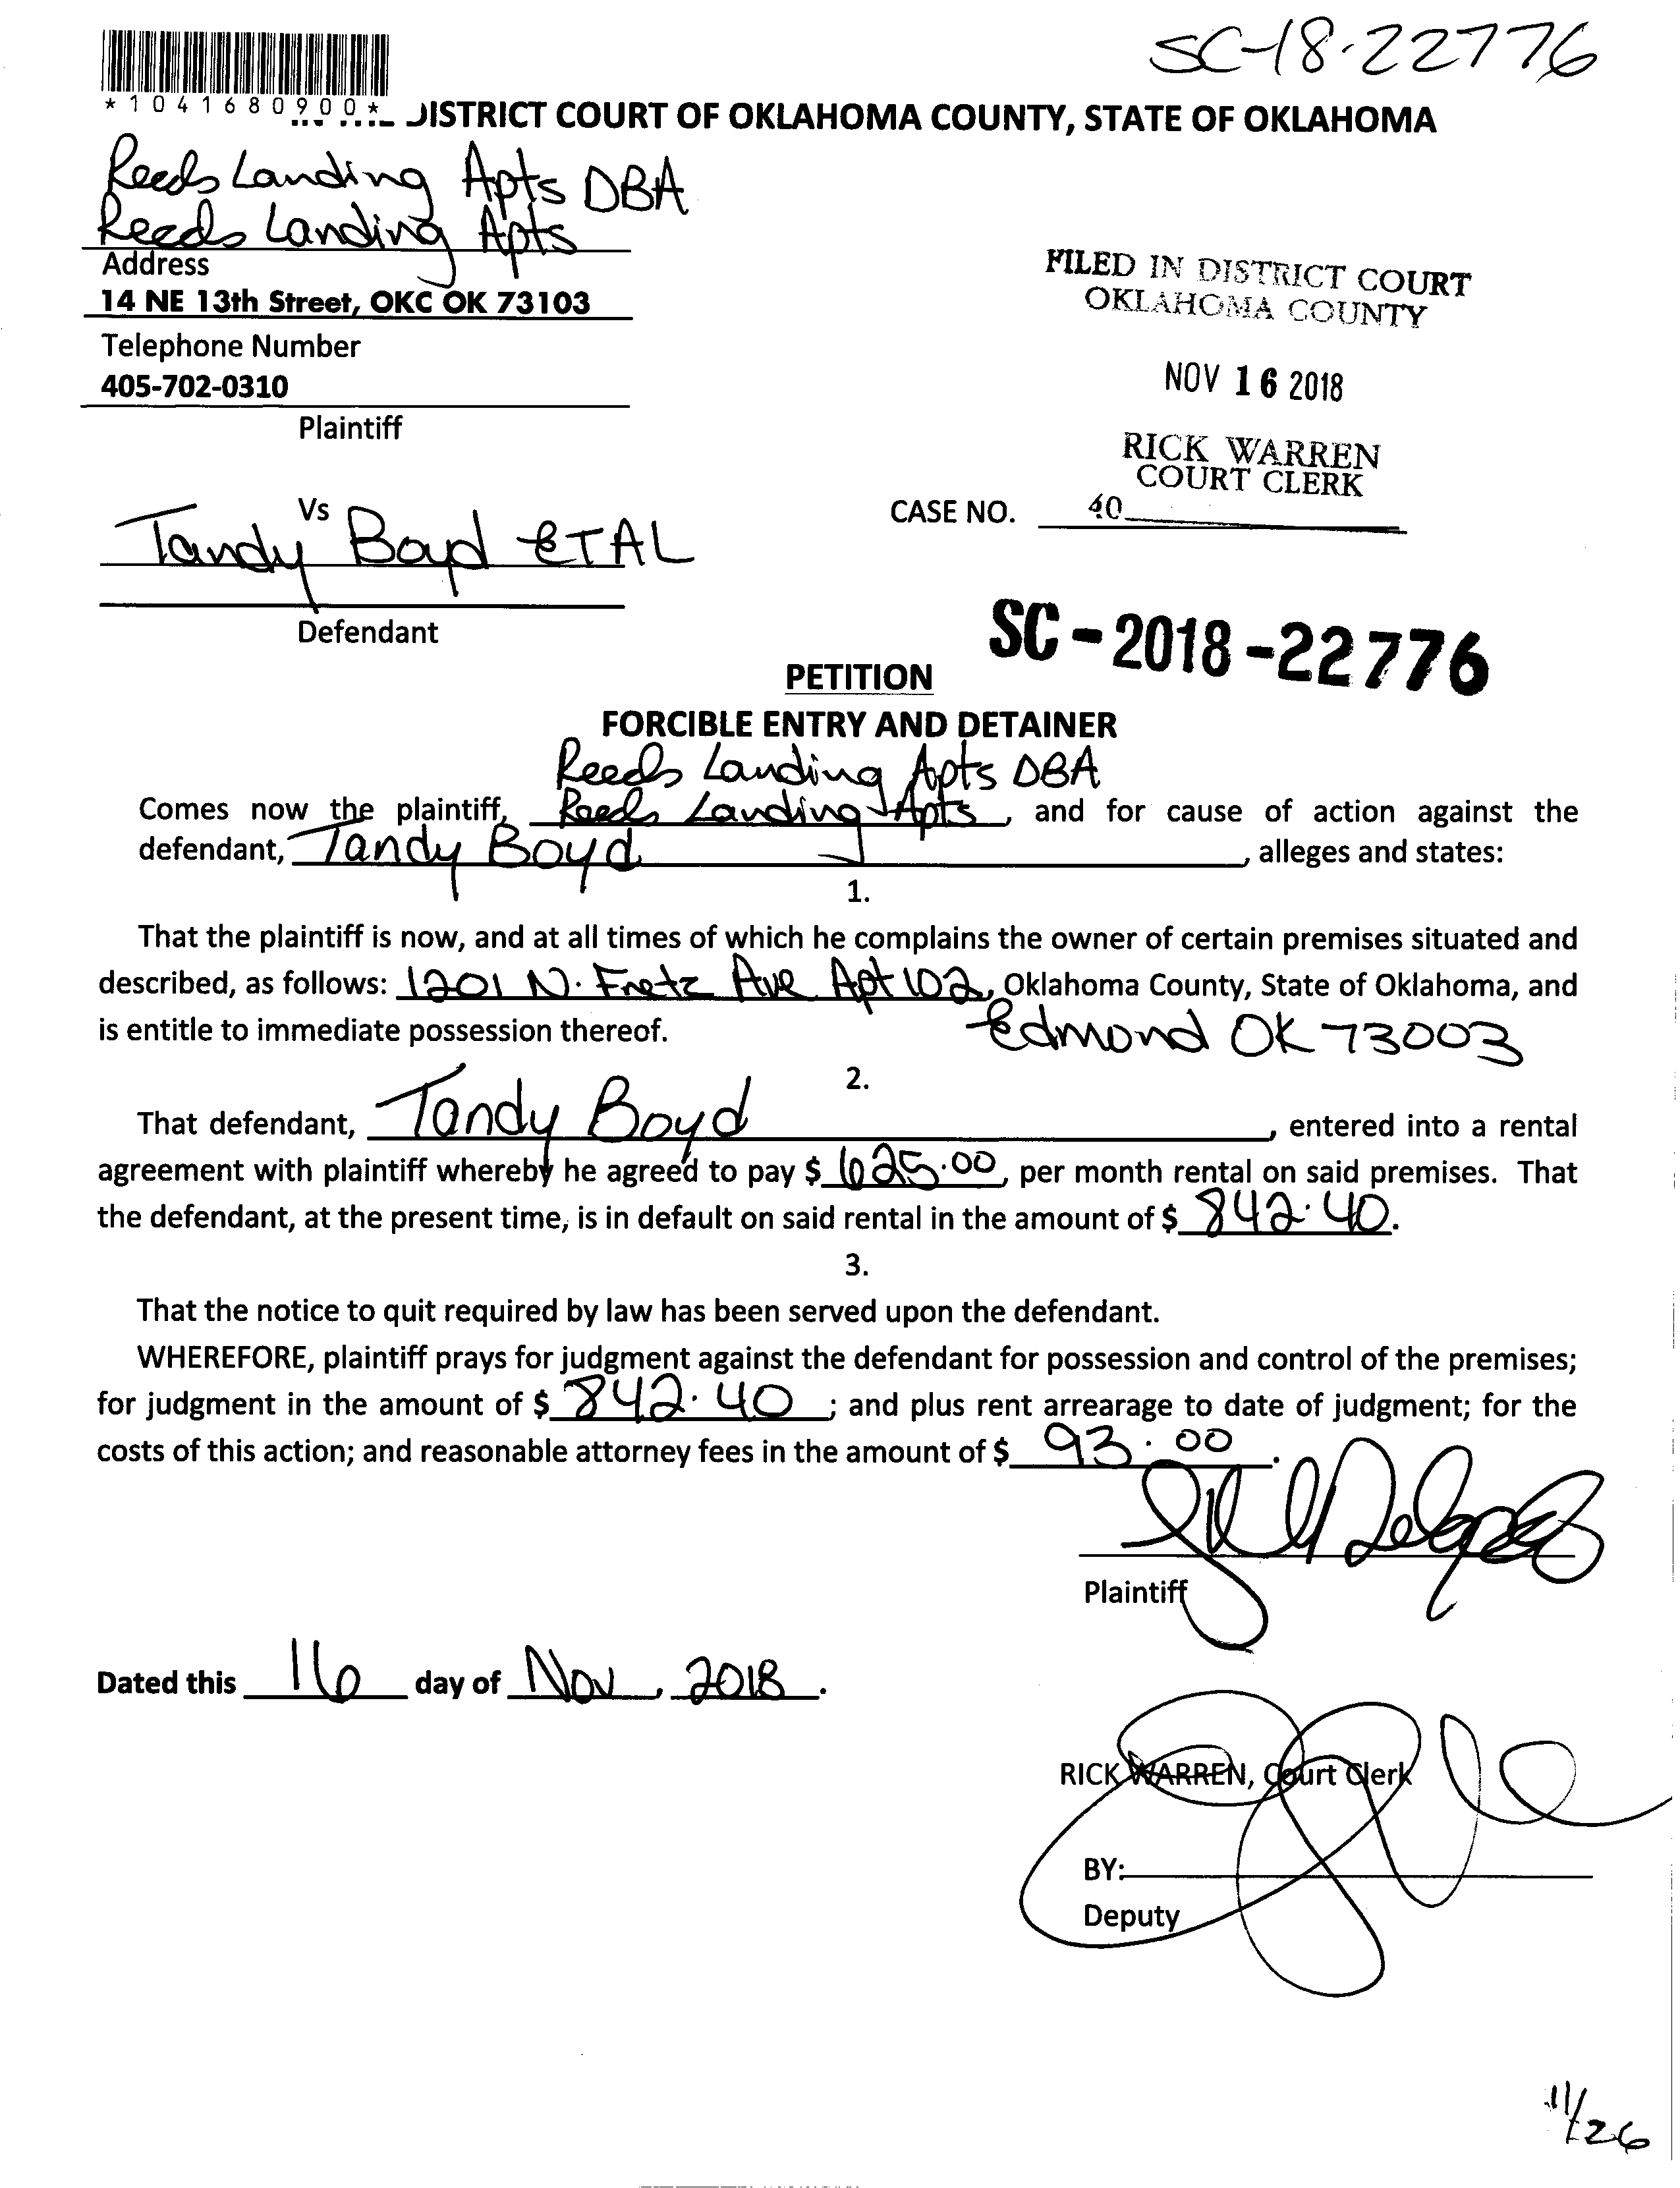 SC-18-22776
*1041680900*
DISTRICT COURT OF OKLAHOMA COUNTY, STATE OF OKLAHOMA
Reeds Landing Apts DBA
Reeds Landing Apts
Address
14 NE 13th Street, OKC OK 73103
Telephone Number
405-702-0310
Plaintiff
FILED IN DISTRICT COURT
OKLAHOMA COUNTY
NOV 16 2018
RICK WARREN
COURT CLERK
Vs
CASE NO. 40
Tandy Boyd ETAL
Defendant
SC-2018-22776
PETITION
FORCIBLE ENTRY AND DETAINER
Reeds Landing Apts DBA
Comes now the plaintiff, Reeds Landing Apts, and for cause of action against the
defendant, Tandy Boyd, alleges and states:
1.
That the plaintiff is now, and at all times of which he complains the owner of certain premises situated and
described, as follows: 1201 N. Fretz Ave Apt 102, Oklahoma County, State of Oklahoma, and
is entitle to immediate possession thereof. Edmond OK 73003
2.
That defendant, Tandy Boyd, entered into a rental
agreement with plaintiff whereby he agreed to pay $ 625.00, per month rental on said premises. That
the defendant, at the present time, is in default on said rental in the amount of $ 842.40.
3.
That the notice to quit required by law has been served upon the defendant.
WHEREFORE, plaintiff prays for judgment against the defendant for possession and control of the premises;
for judgment in the amount of $ 842.40; and plus rent arrearage to date of judgment; for the
costs of this action; and reasonable attorney fees in the amount of $ 93.00.
Plaintiff
Dated this 16 day of Nov, 2018.
RICK WARREN, Court Clerk
BY:
Deputy
11/26